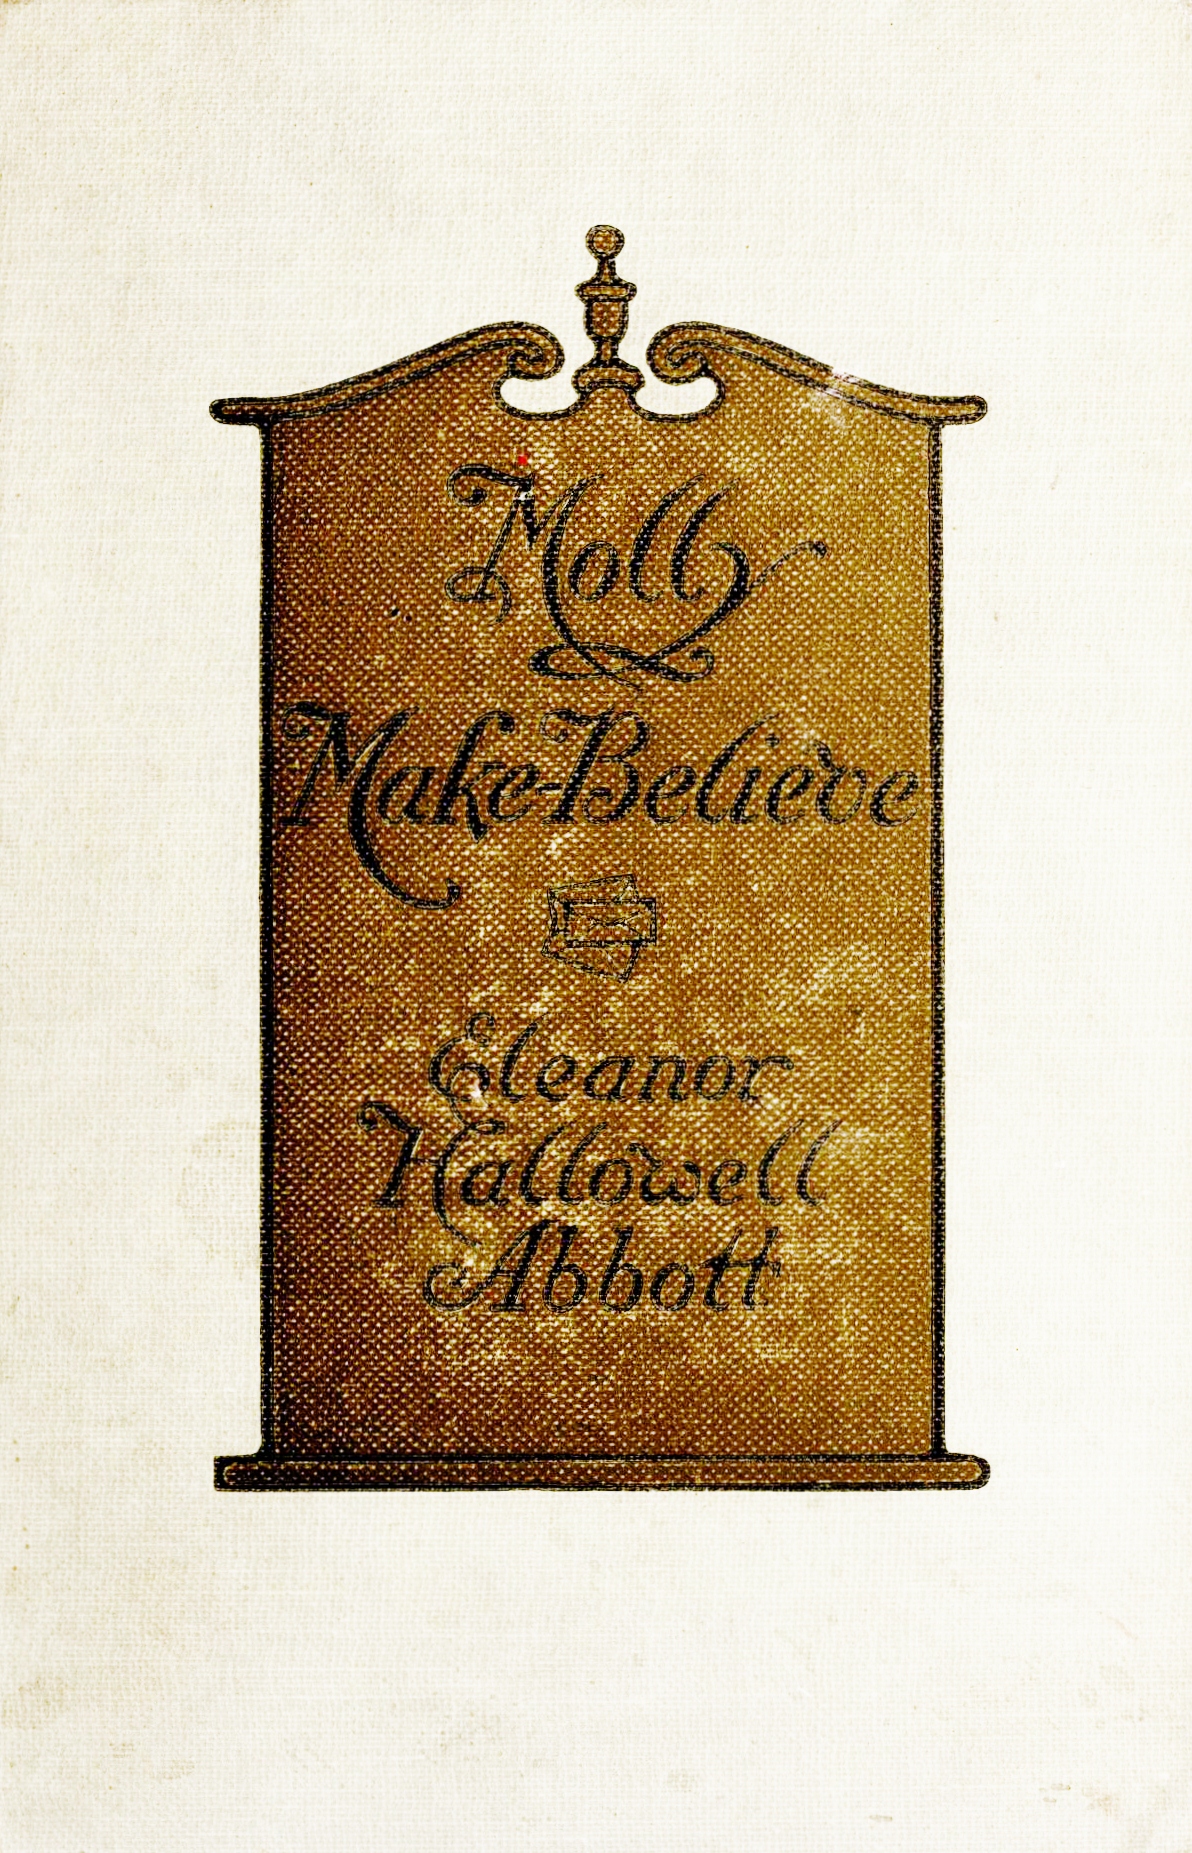 Molly
Make-Believe
Eleanor
Hallowell
Abbott